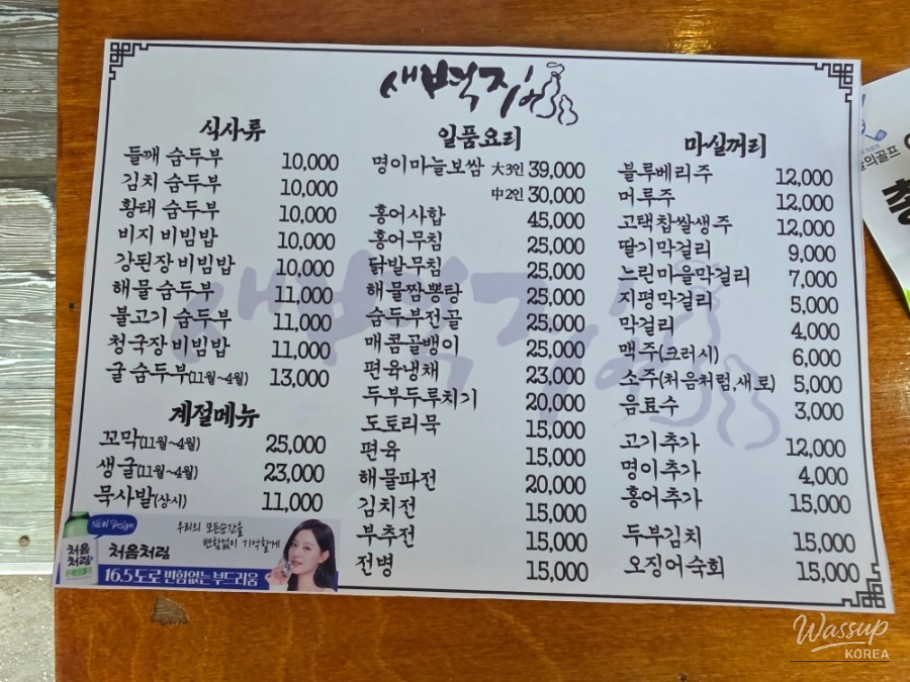 새벽집
식사류
들깨 숨두부 10,000
김치 숨두부 10,000
황태 숨두부 10,000
비지 비빔밥 10,000
강된장 비빔밥 10,000
해물 숨두부 11,000
불고기 숨두부 11,000
청국장 비빔밥 11,000
굴 숨두부(11월~4월) 13,000
계절메뉴
꼬막(11월~4월) 25,000
생굴(11월~4월) 23,000
묵사발(상시) 11,000
NEW Design
처음처럼
우리의 모든순간을
변함없이 기억할게
처음처럼
16.5도로 변함없는 부드러움
일품요리
명이마늘보쌈 大3인 39,000
中2인 30,000
홍어사합 45,000
홍어무침 25,000
닭발무침 25,000
해물짬뽕탕 25,000
숨두부전골 25,000
매콤골뱅이 25,000
편육냉채 23,000
두부두루치기 20,000
도토리묵 15,000
편육 15,000
해물파전 20,000
김치전 15,000
부추전 15,000
전병 15,000
마실꺼리
블루베리주 12,000
머루주 12,000
고택찹쌀생주 12,000
딸기막걸리 9,000
느린마을막걸리 7,000
지평막걸리 5,000
막걸리 4,000
맥주(크러시) 6,000
소주(처음처럼,새로) 5,000
음료수 3,000
고기추가 12,000
명이추가 4,000
홍어추가 15,000
두부김치 15,000
오징어숙회 15,000
Wassup
KOREA